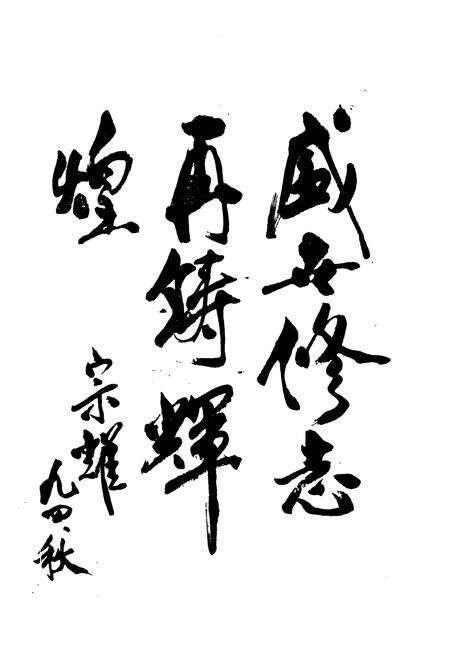 盛世修志
再铸辉
煌
宗耀
九四、秋